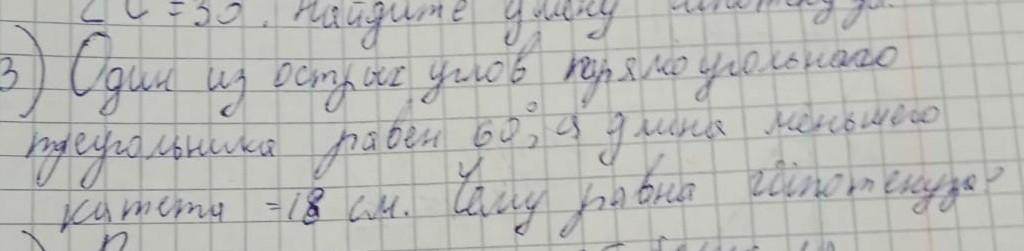 ∠C=30°. Найдите длину гипотенузы.
3) Один из острых углов прямоугольного
треугольника равен 60°, а длина меньшего
катета =18 см. Чему равна гипотенуза